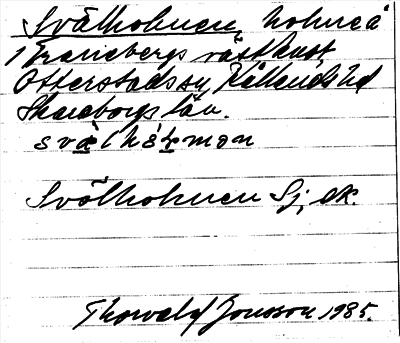 Svälholmen, holme å
Tranebergs västkust
Otterstads sn, Kållands hd
Skaraborgs län.
svälhólmən
Svölholmen Sj. ek.
Thorvald Jonsson 1985.